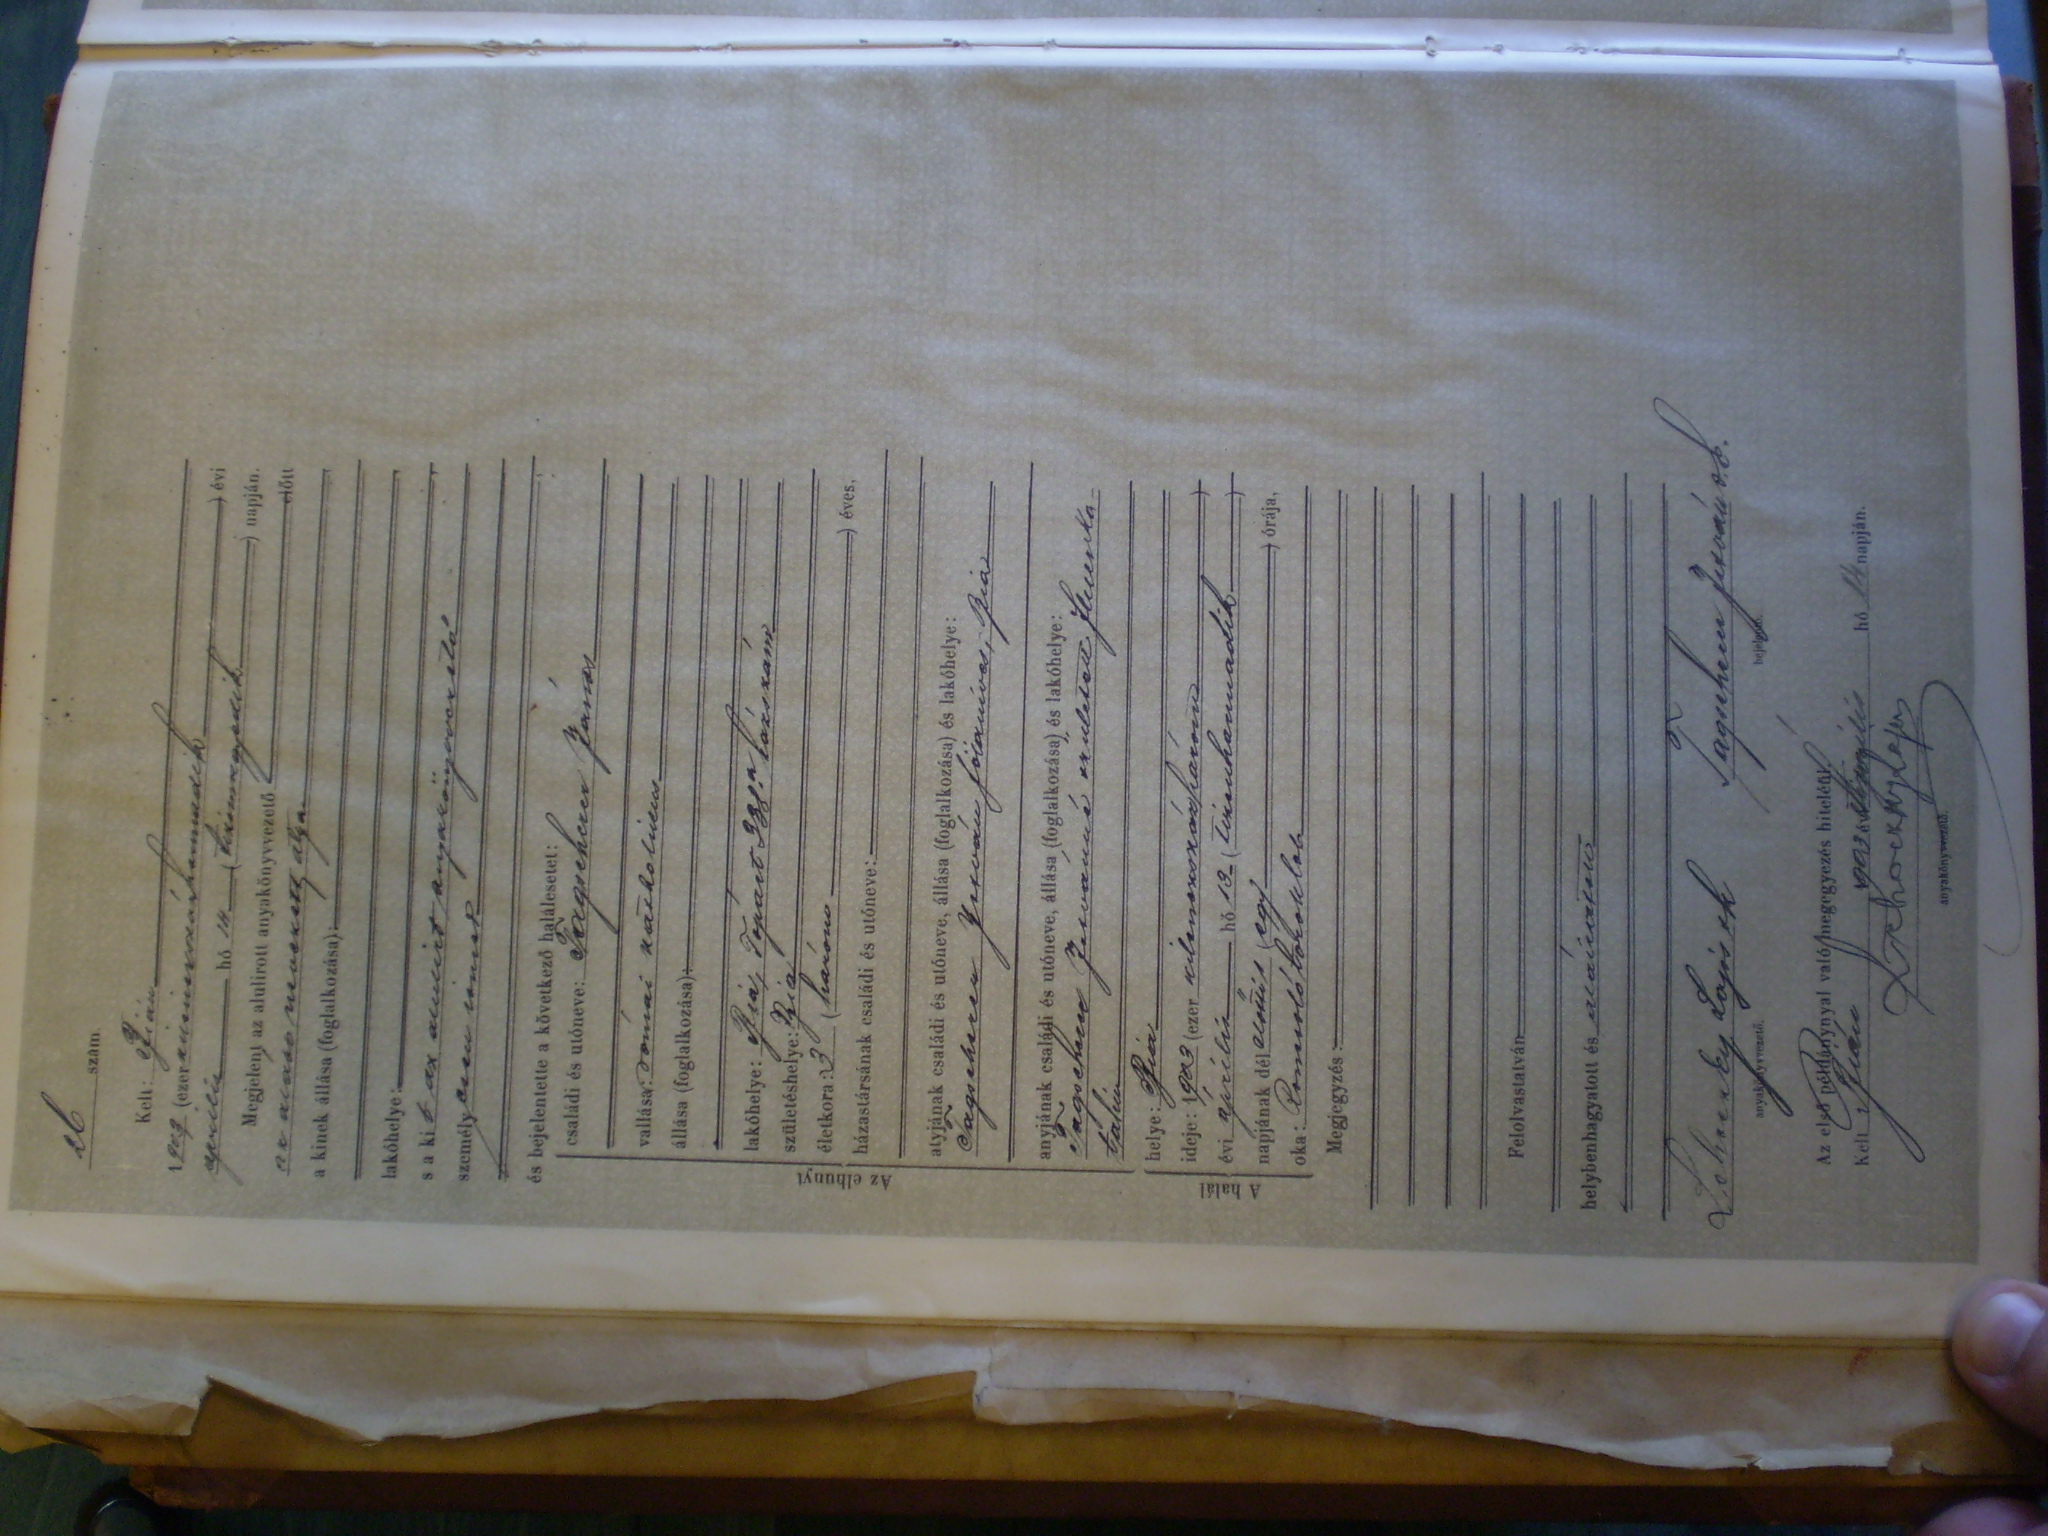 26 szám.
Kelt: Bián
1903 (ezerkilencszázharmadik) évi
április hó 14 (tizennegyedik) napján.
Megjelent az alulirott anyakönyvvezető előtt
az alább megnevezett atyja
a kinek állása (foglalkozása):
lakóhelye:
s a ki t az alulirt anyakönyvvezető
személyesen ismer
és bejelentette a következő halálesetet:
Az elhunyt
családi és utóneve: Tagscherer János
vallása: római katholikus
állása (foglalkozása):
lakóhelye: Bia, 338. házszám
születéshelye: Bia
életkora: 3 (három) éves,
házastársának családi és utóneve:
atyjának családi és utóneve, állása (foglalkozása) és lakóhelye:
Tagscherer István földmives, Bia
anyjának családi és utóneve, állása (foglalkozása) és lakóhelye:
Tagscherer Istvánné született
A halál
helye: Bia
ideje: 1903 (ezer kilencszázhárom)
évi április hó 13 (tizenharmadik)
napjának dél előtti (egy) órája,
oka: Roncsoló toroklob
Megjegyzés:
Felolvastatván
helybenhagyatott és aláiratott
Lajos sk Tagscherer István s.k.
anyakönyvvezető. bejelentő.
Az első példánynyal való megegyezés hiteléül.
Kelt Bián 1903 évi április hó 14 napján.
anyakönyvvezető.